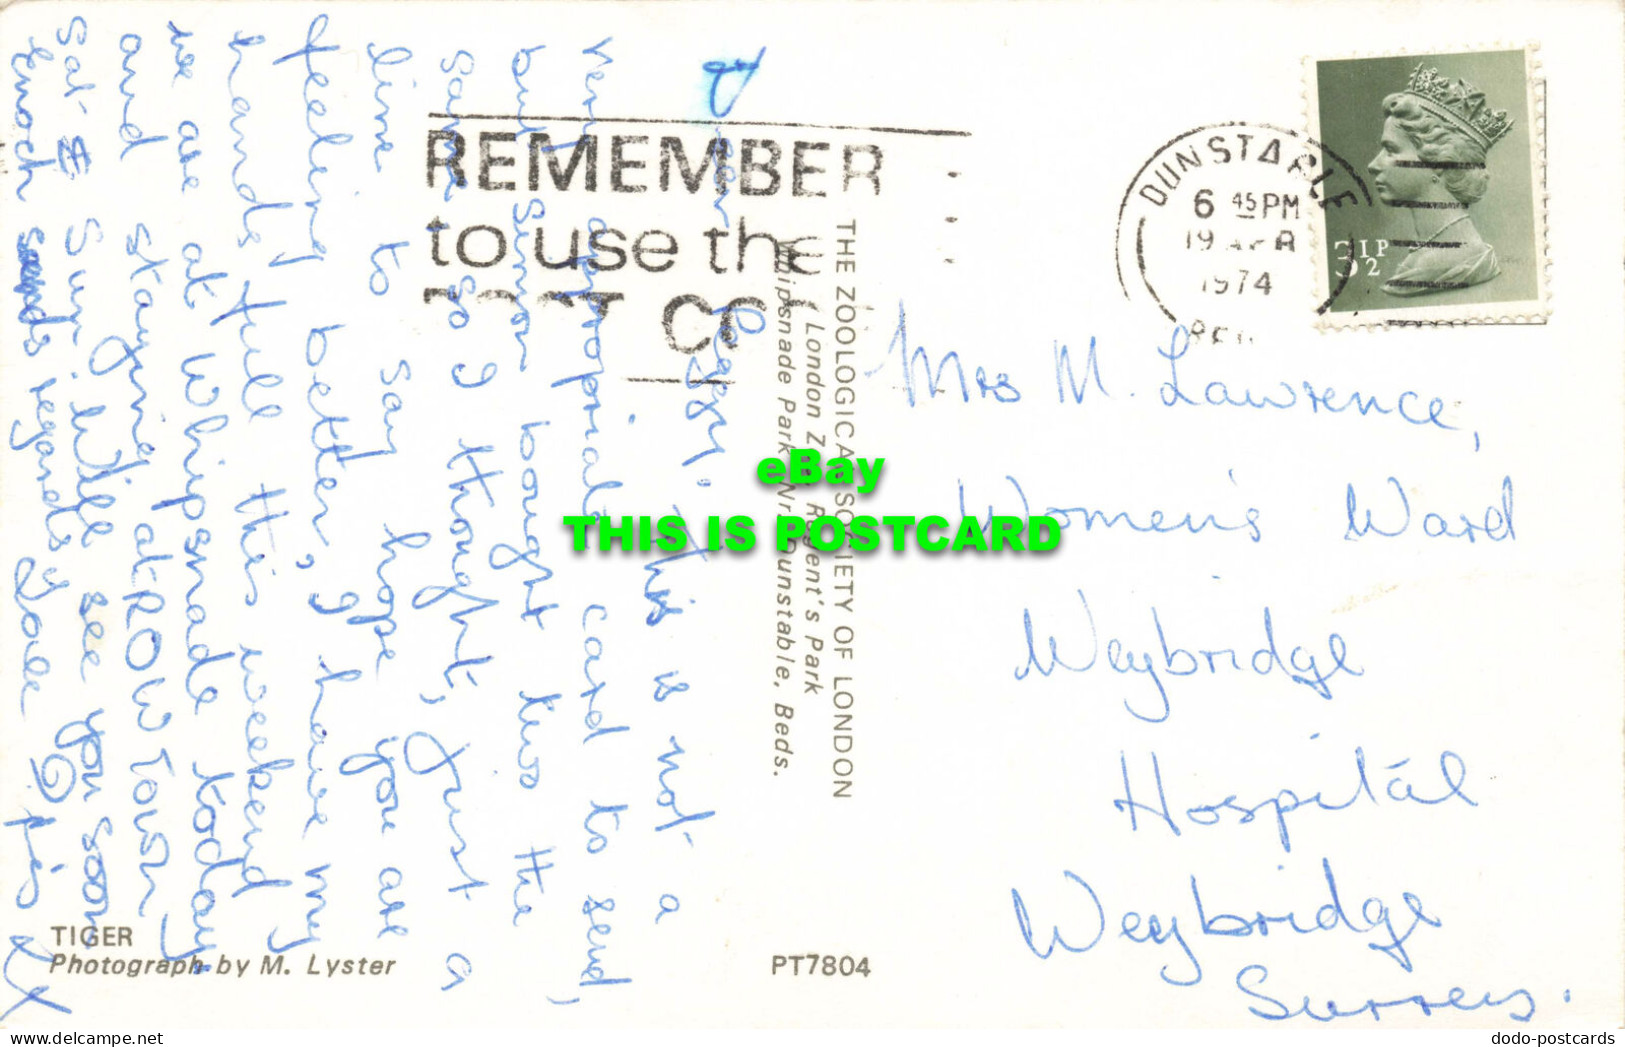 Dear Peggy, This is not a
very appropriate card to send,
but Simon bought two the
same so I thought, just a
line to say hope you are
feeling better, I have my
hands full this weekend
we are at Whipsnade today,
and staying at ROWTown
Sat & Sun Will see you soon
Enoch sends regards, Love
xx
REMEMBER
to use the
POST CO
THE ZOOLOGICAL SOCIETY OF LONDON
London Zoo, Regent's Park
Whipsnade Park, Nr. Dunstable, Beds.
DUNSTABLE
6 45 PM
19 APR
1974
BED
3½P
Mrs M. Lawrence,
Women's Ward
Weybridge
Hospital
Weybridge
Surrey.
TIGER
Photograph by M. Lyster
PT7804
eBay
THIS IS POSTCARD
dodo-postcards